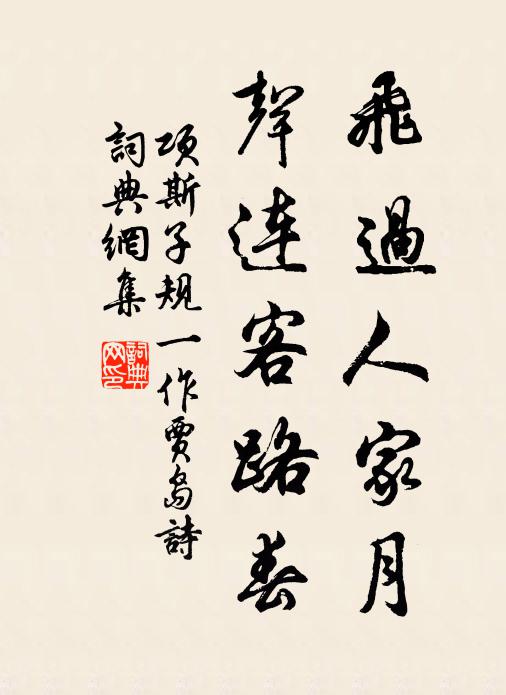 飛過人家月
聲連客路春
項斯子規一作賈島詩
詞典網集
詞典网印